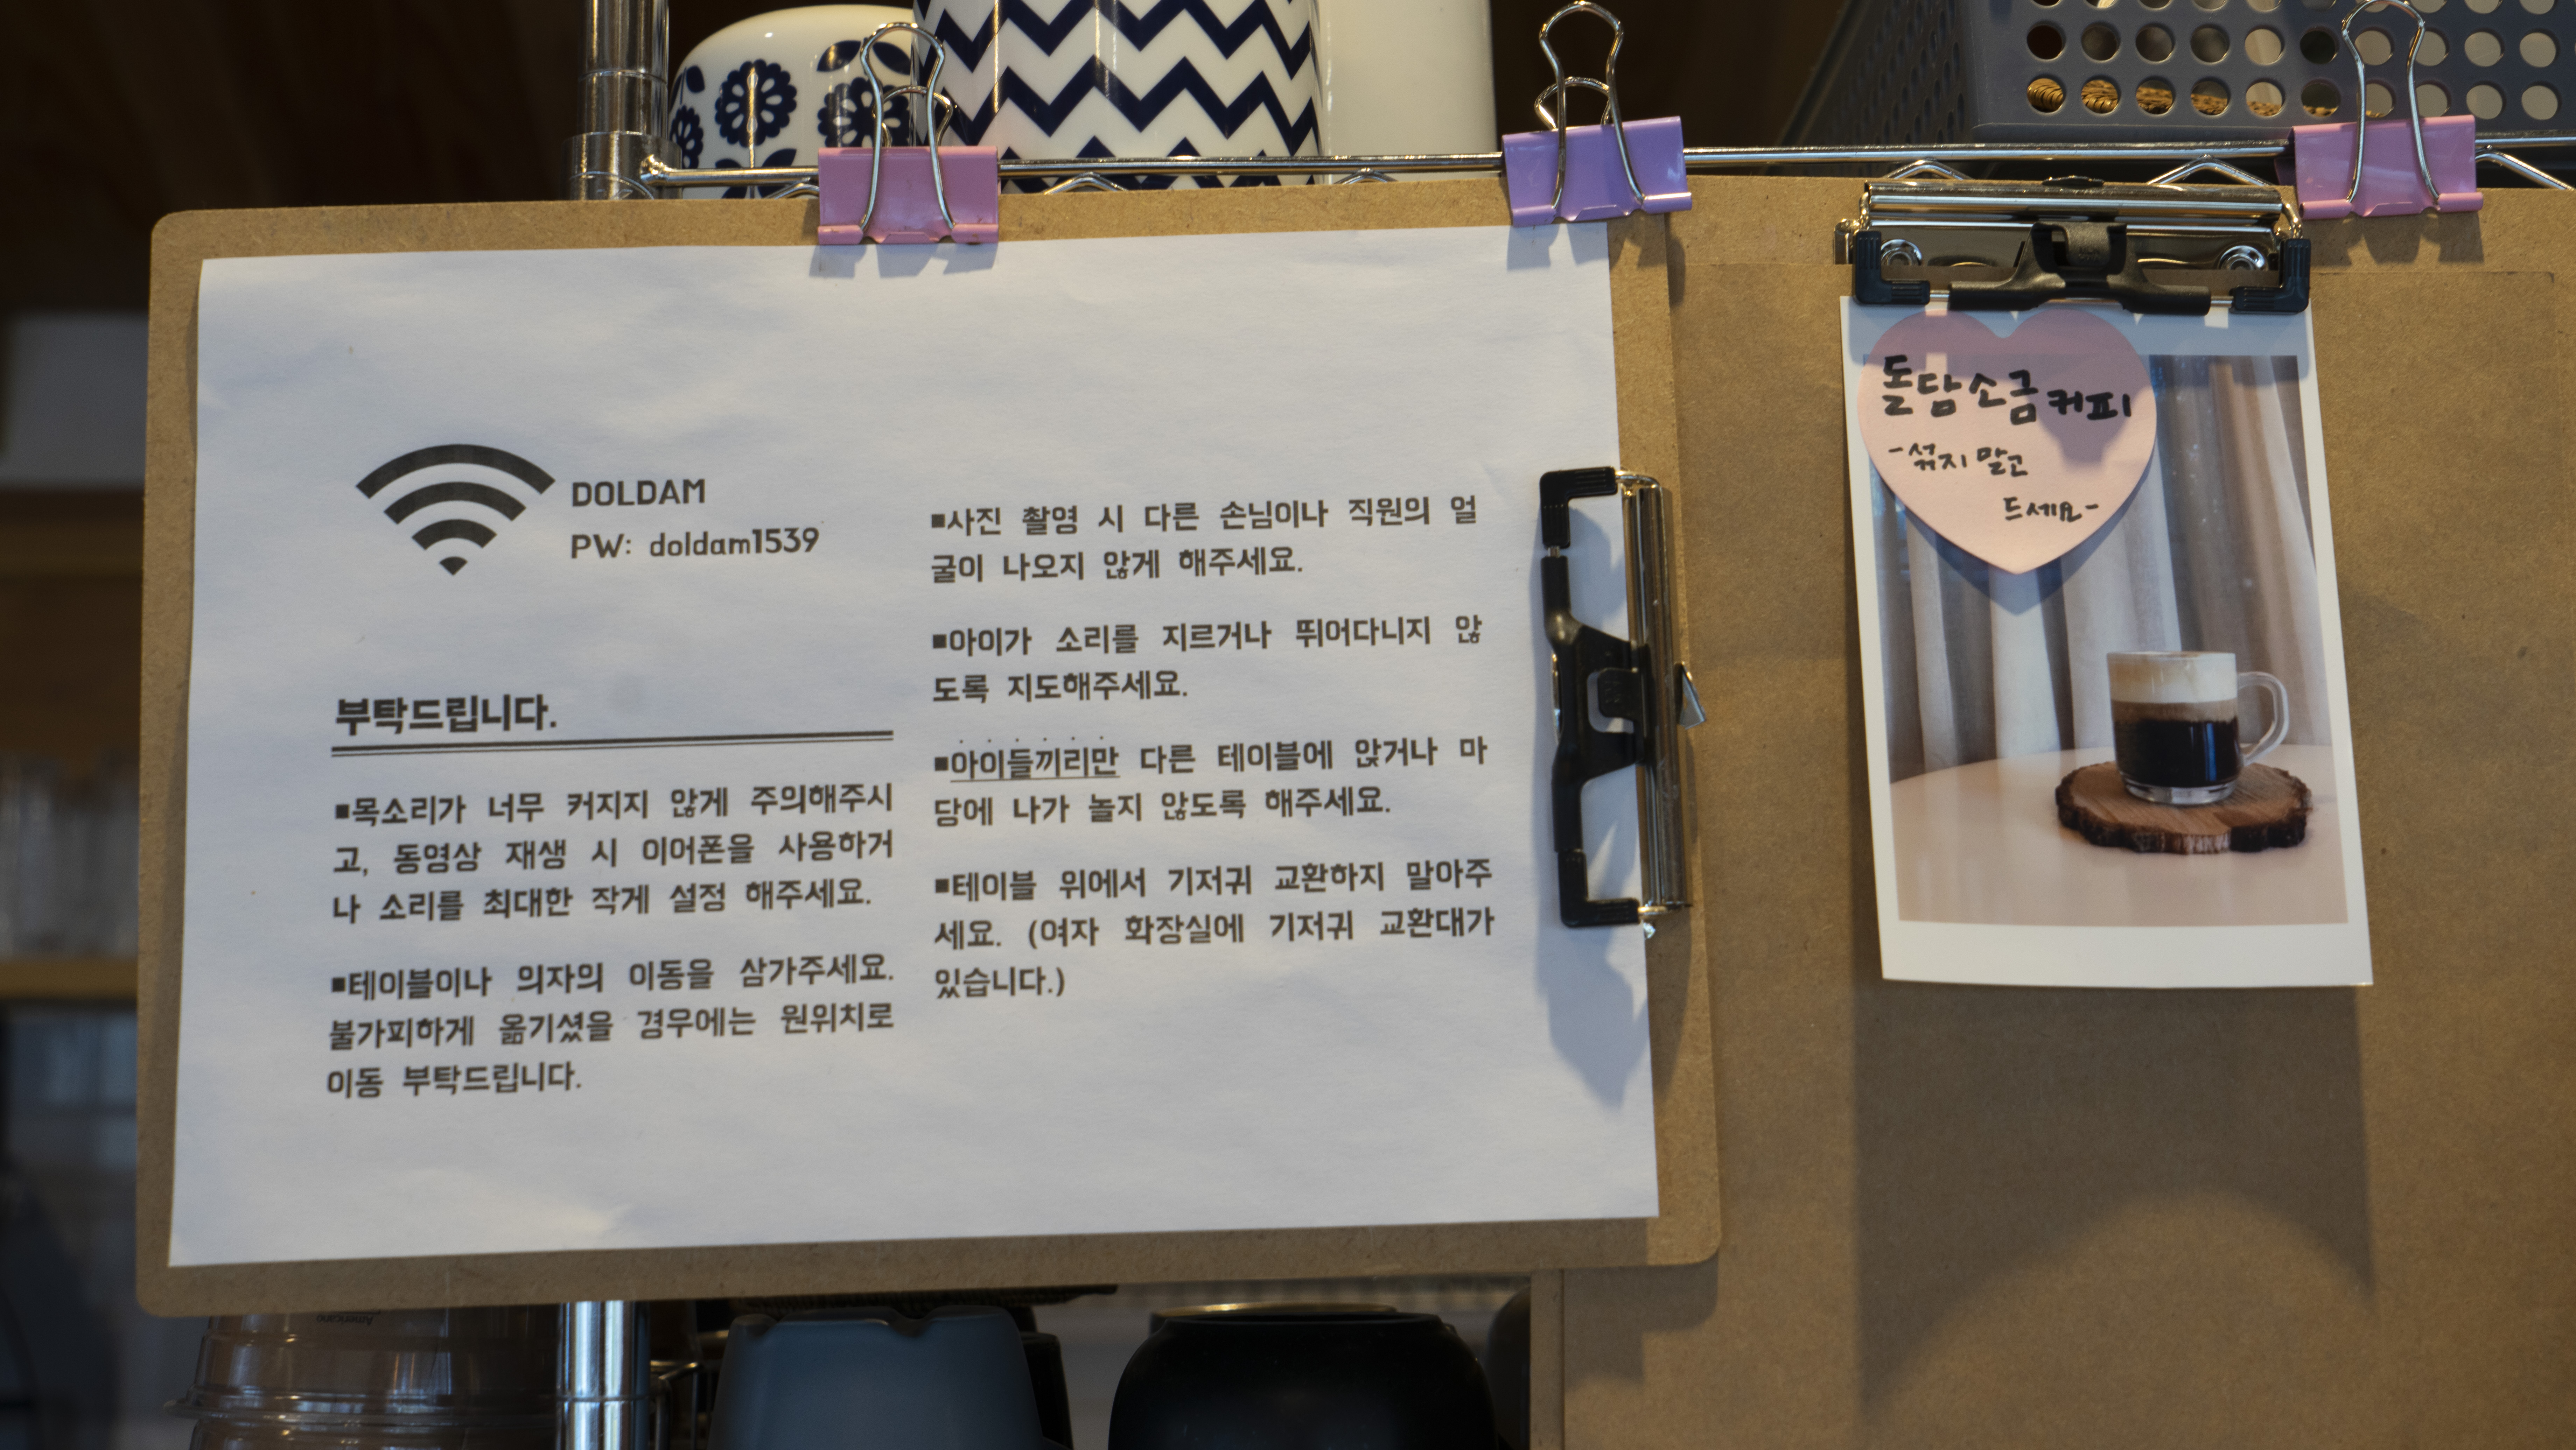 DOLDAM
PW: doldam1539
부탁드립니다.
■목소리가 너무 커지지 않게 주의해주시
고, 동영상 재생 시 이어폰을 사용하거
나 소리를 최대한 작게 설정 해주세요.
■테이블이나 의자의 이동을 삼가주세요.
불가피하게 옮기셨을 경우에는 원위치로
이동 부탁드립니다.
■사진 촬영 시 다른 손님이나 직원의 얼
굴이 나오지 않게 해주세요.
■아이가 소리를 지르거나 뛰어다니지 않
도록 지도해주세요.
■아이들끼리만 다른 테이블에 앉거나 마
당에 나가 놀지 않도록 해주세요.
■테이블 위에서 기저귀 교환하지 말아주
세요. (여자 화장실에 기저귀 교환대가
있습니다.)
돌담소금커피
-섞지 말고
드세요-
Americano